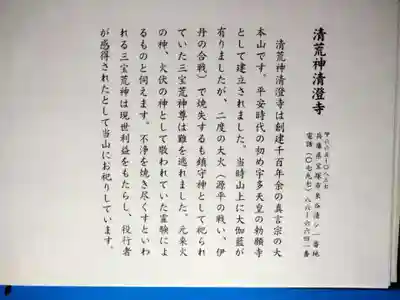 清荒神清澄寺
〒六六五-〇八三七
兵庫県宝塚市米谷清シ一番地
電話（〇七九七）八六-六六四一番
清荒神清澄寺は創建千百年余の真言宗の大
本山です。平安時代の初め宇多天皇の勅願寺
として建立されました。当時山上に大伽藍が
有りましたが、二度の大火（源平の戦い、伊
丹の合戦）で焼失するも鎮守神として祀られ
ていた三宝荒神尊は難を逃れました。元来火
の神、火伏の神として敬われていた霊験によ
るものと伺えます。不浄を焼き尽くすといわ
れる三宝荒神は現世利益をもたらし、役行者
が感得されたとして当山にお祀りしています。